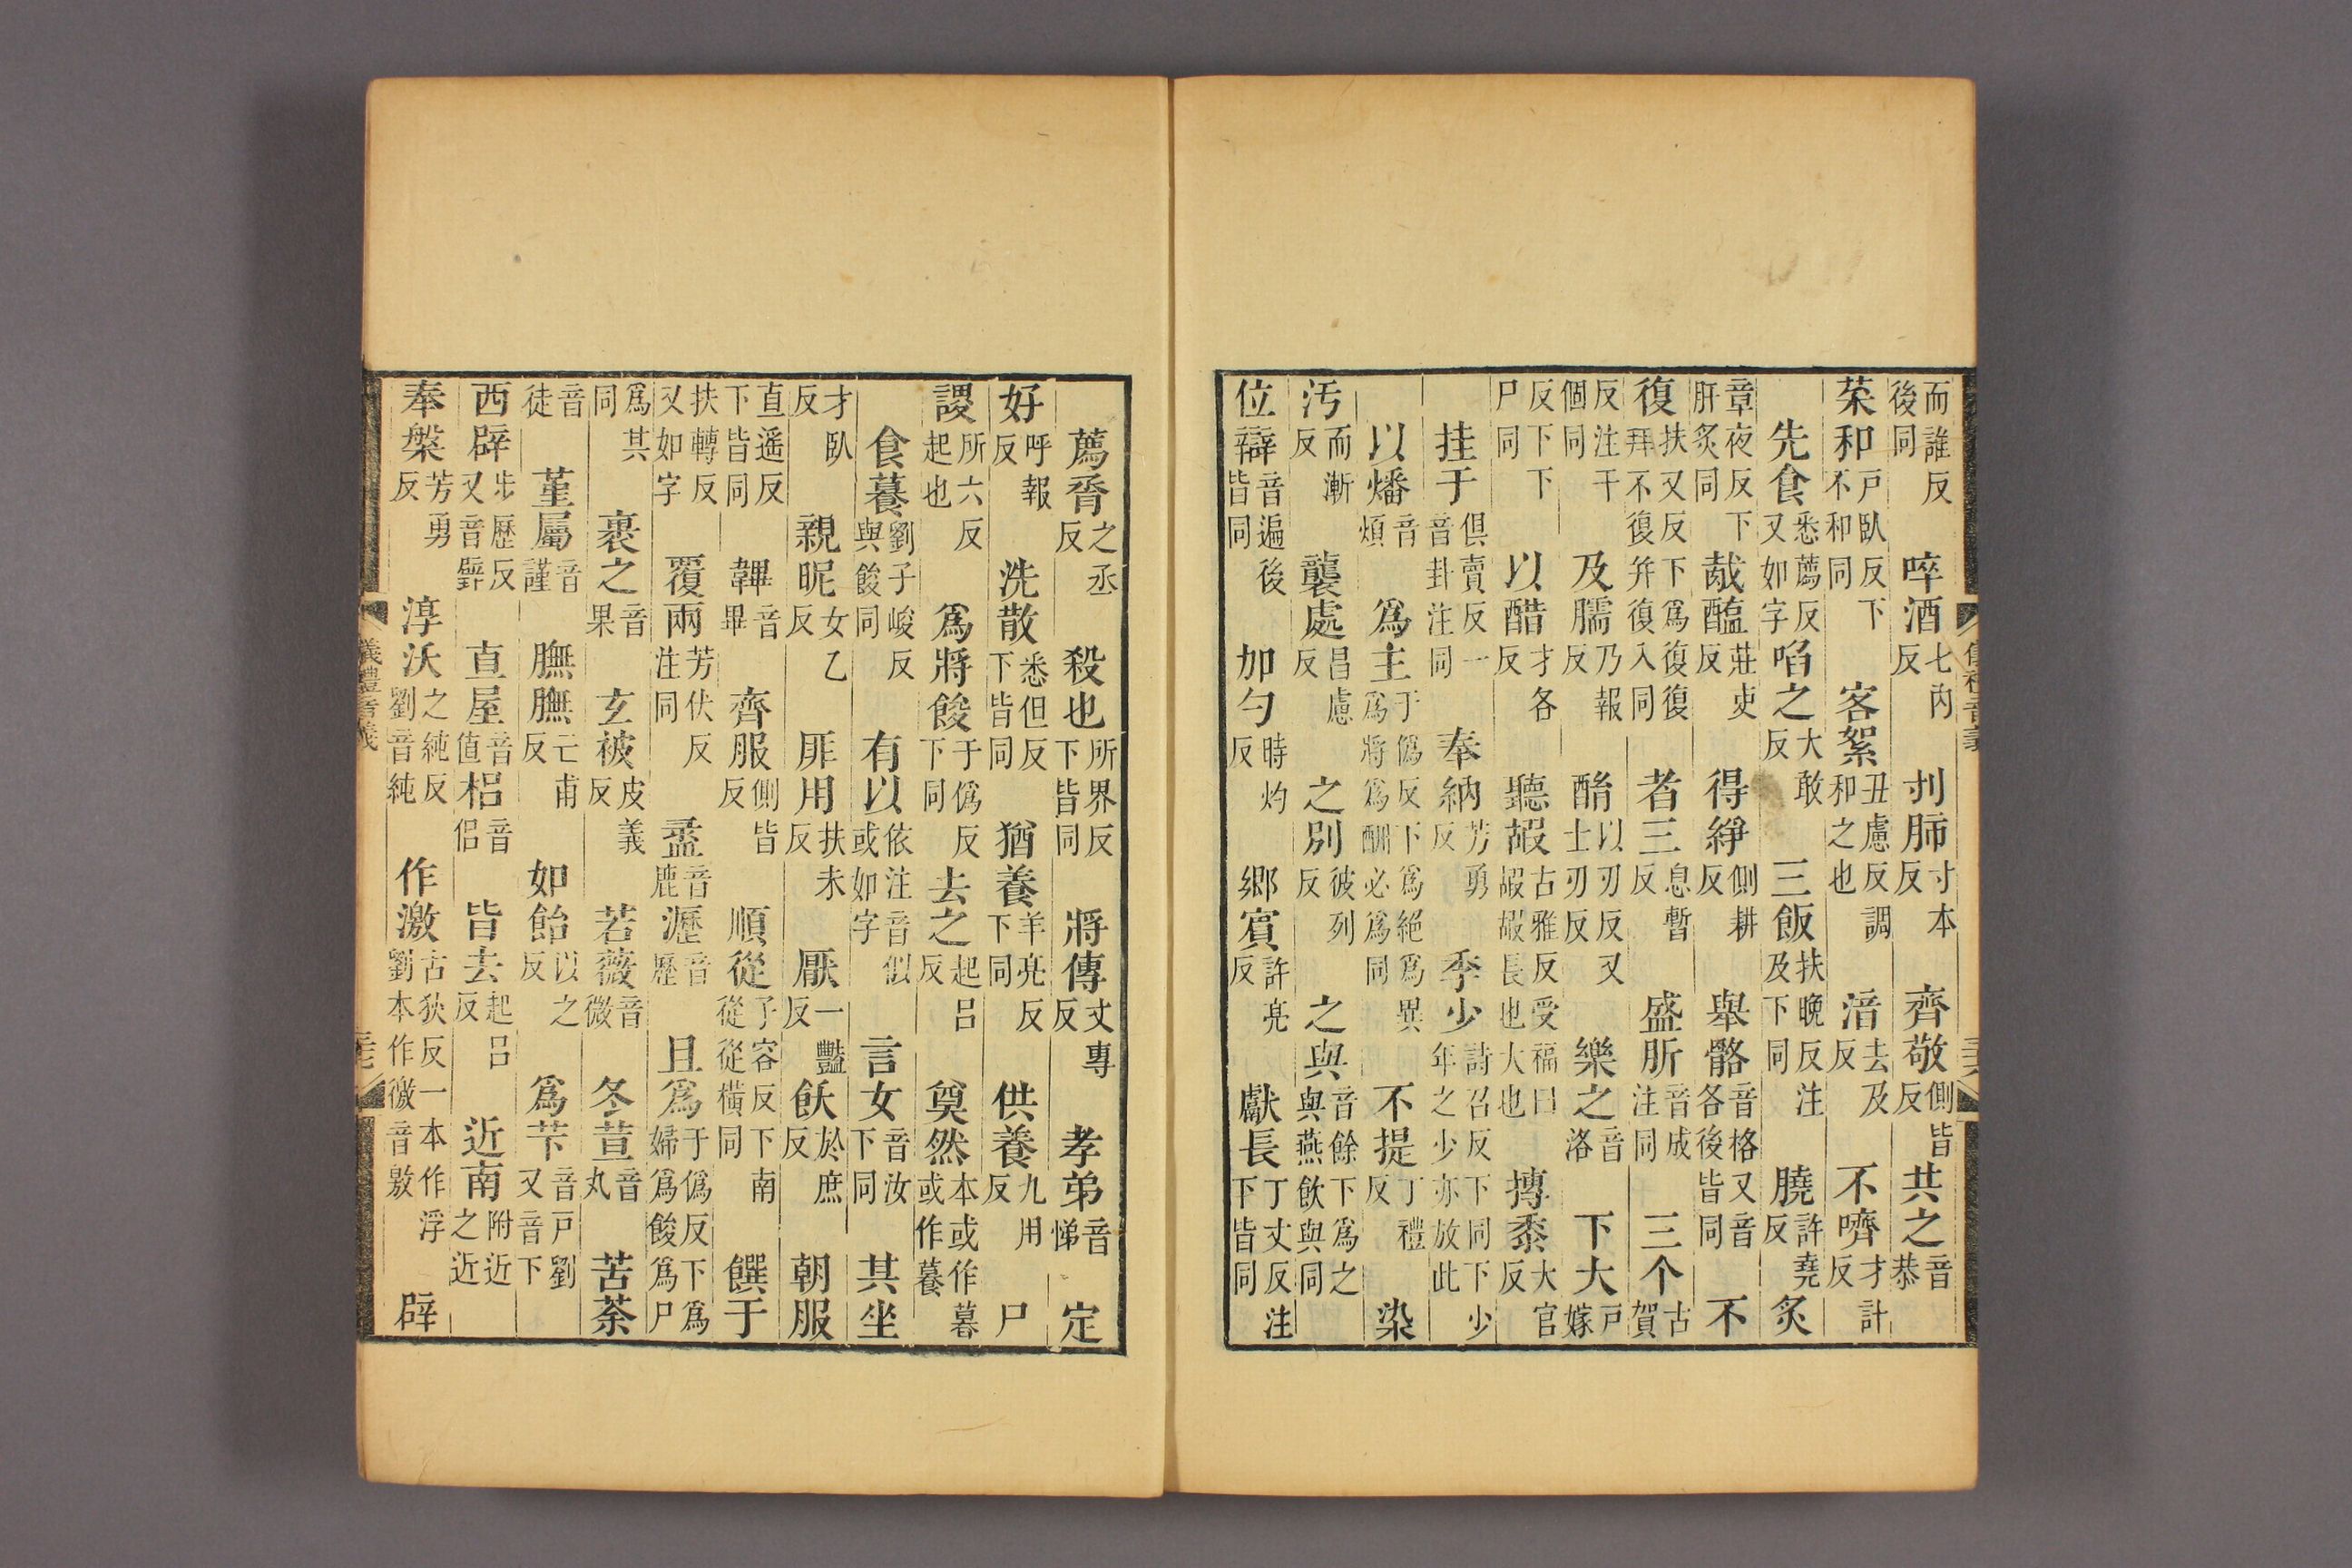 而誰反後同 啐酒七內反 刌肺寸本反 齊敬側皆反 共之音恭
菜和戶臥反下不和同 客絮丑慮反調和之也 湆去及反 不嚌才計反
先食悉薦反又如字 啗之大敢反 三飯扶晚反注及下同 膮許堯反 炙
章夜反下肝炙同 胾醢莊吏反 得綪側耕反 舉骼音格又音各後皆同 不
復扶又反下爲復復拜不復并復入同 者三息暫反 盛肵音成注同 三个古賀
反注干個同 及臑乃報反 酳以刃反又士刃反 樂之音洛 下大戶嫁
反下下尸同 以醋才各反 聽嘏古雅反受福曰嘏嘏長也大也 摶黍大官反
挂于俱賣反一音卦注同 奉納芳勇反 季少詩召反下同下少年之少亦放此
以燔音煩 爲主于僞反下爲絕爲異爲將爲酬必爲同 不提丁禮反 染
汚而漸反 襲處昌慮反 之別彼列反 之與音餘下爲之與燕飲與同
位辯音遍後皆同 加勺時灼反 鄉賓許亮反 獻長丁丈反注下皆同
薦脀之丞反 殺也所界反下皆同 將傳丈專反 孝弟音悌 定
好呼報反 洗散悉但反下皆同 猶養羊亮反下同 供養九用反 尸
謖所六反起也 爲將餕于僞反下同 去之起呂反 奠然本或作暮或作䕍
食䕍劉子峻反與餕同 有以依注音似或如字 言女音汝下同 其坐
才臥反 親昵女乙反 厞用扶未反 厭一豔反 飫於庶反 朝服
直遥反下皆同 韠音畢 齊服側皆反 順從子容反下南從從橫同 饌于
扶轉反又如字 覆兩芳伏反注同 盝音鹿 瀝音歷 且爲于僞反下爲婦爲餕爲尸
爲其同 裹之音果 玄被皮義反 若薇音微 冬荁音丸 苦荼
音徒 菫屬音謹 膴膴亡甫反 如飴以之反 爲芐音戶劉又音下
西辟步歷反又音壁 直屋音值 梠音侶 皆去起呂反 近南附近之近
奉槃芳勇反 淳沃之純反劉音純 作激古狄反一本作浮劉本作徼音敫 辟
儀禮音義